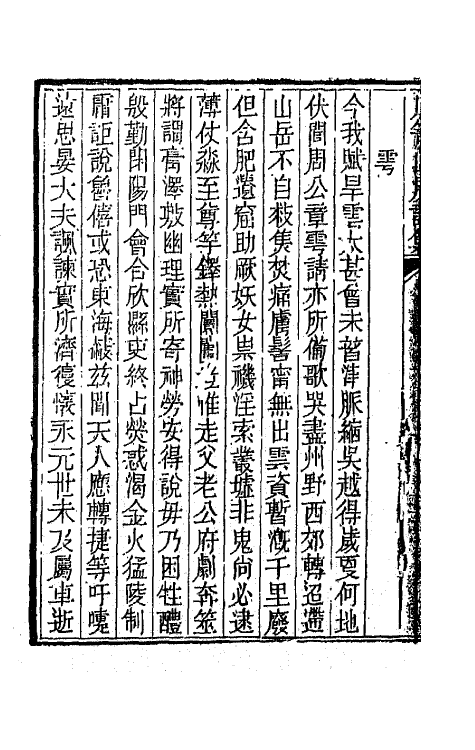 雩
今我賦旱雲太甚曾未暫津脈縮吳越得歲夏何地
伏聞周公章雩請亦所備歌哭盡州野西郊轉迢遰
山岳不自救焦焚痛膚髻甯無出雲資暫漑千里廢
但含肥遺窟助厥妖女祟禨淫索叢墟非鬼尙必逮
薄仗淼至尊竽鐸熱闐惟走父老公府劇奔筮
將謂膏澤敷幽理實所寄神勞安得說毋乃困牲醴
殷勤閉陽門會合欣縣史終占熒惑渴金火猛陵制
屑詎說魯僖或恐東海茲聞天人應轉捷等吁嚏
遠思晏大夫諷諫實所濟復懷永元世未及屬車逝